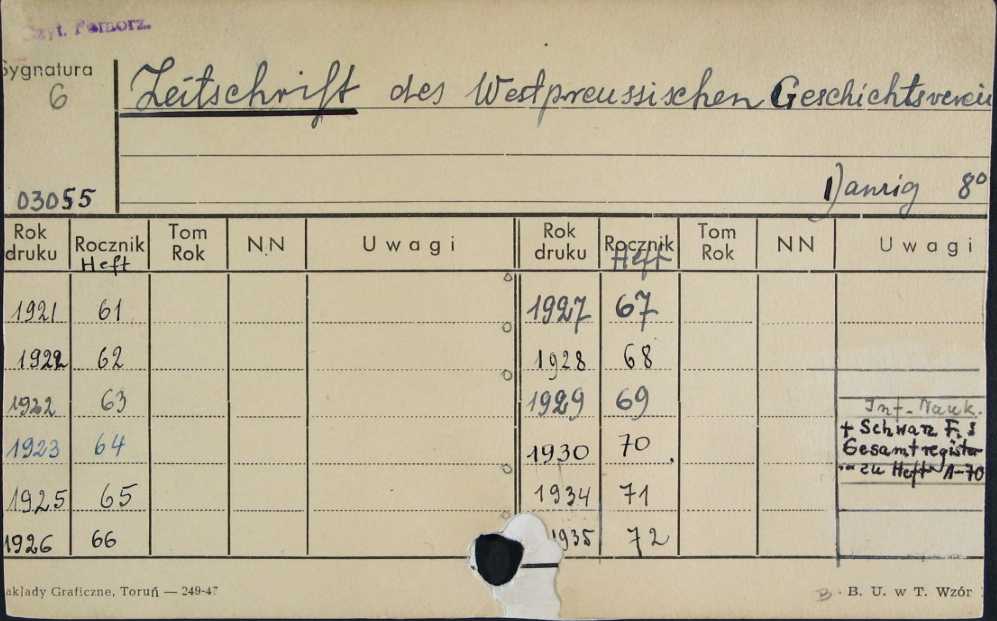 Czyt. Pomorz.
Sygnatura
6
Zeitschrift des Westpreussischen Geschichtsverein
Danzig 8º
03055
Rok druku Rocznik Heft Tom Rok NN Uwagi Rok druku Rocznik Heft Tom Rok NN Uwagi
1921 61 1927 67
1922 62 1928 68
1922 63 1929 69
Inf. Nauk.
+ Schwarz F.
1923 64 1930 70
Gesamtregister
zu Heft 1-70
1925 65 1934 71
1926 66 1935 72
akłady Graficzne, Toruń — 249-47
B. U. w T. Wzór